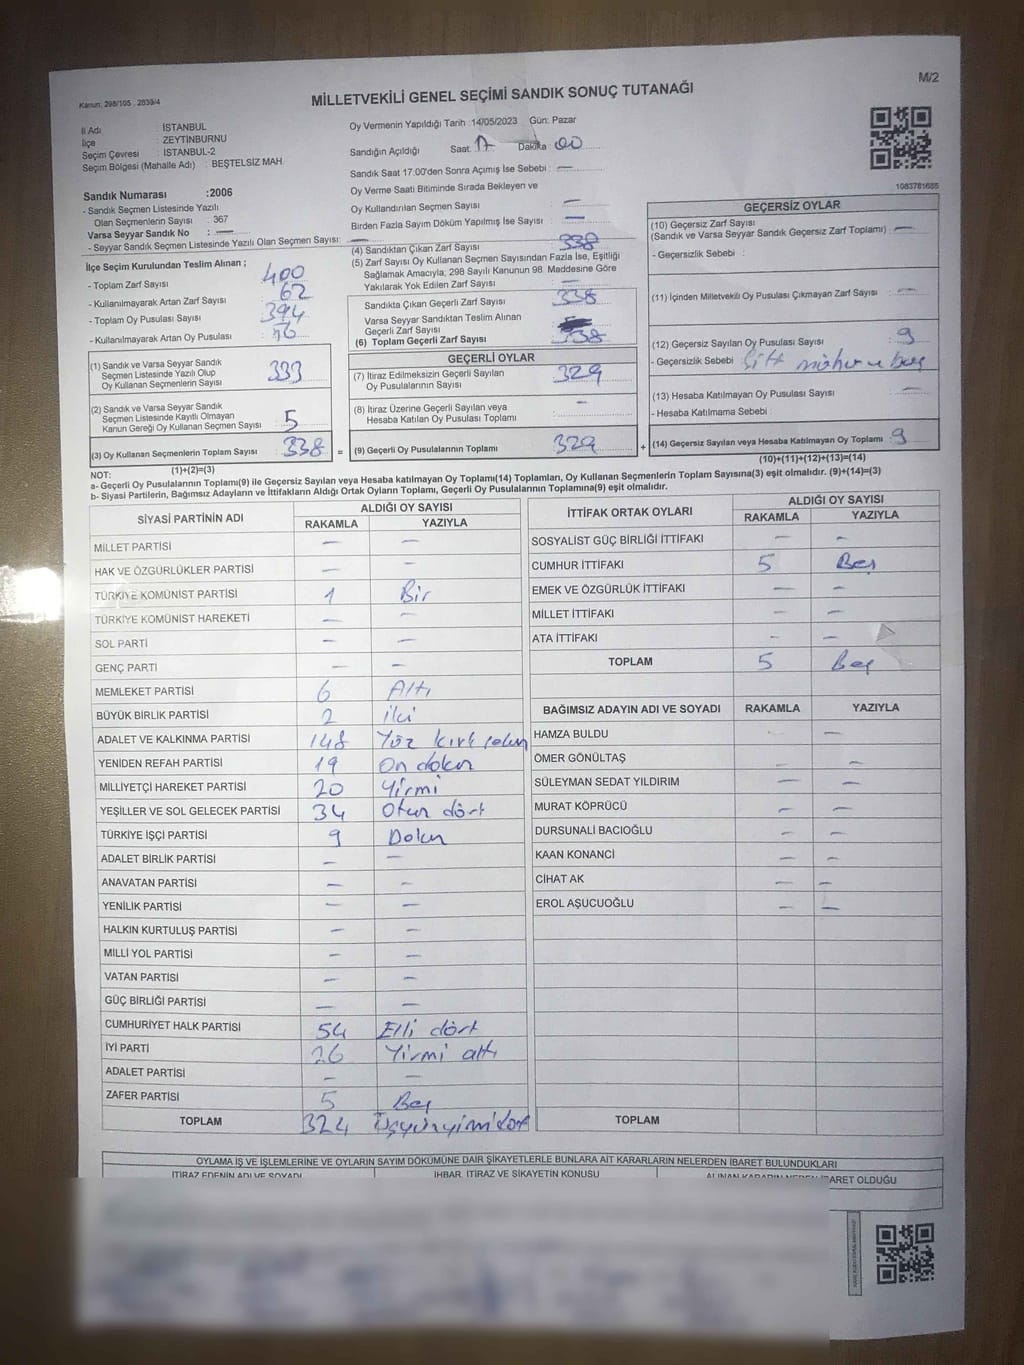 M/2
Kanun, 298/105 , 2839/4
MİLLETVEKİLİ GENEL SEÇİMİ SANDIK SONUÇ TUTANAĞI
İl Adı : İSTANBUL
İlçe : ZEYTİNBURNU
Seçim Çevresi : İSTANBUL-2
Seçim Bölgesi (Mahalle Adı) : BEŞTELSİZ MAH.
Oy Vermenin Yapıldığı Tarih :14/05/2023 Gün: Pazar
Sandığın Açıldığı Saat 17 Dakika 00
Sandık Saat 17.00'den Sonra Açımış İse Sebebi : —
Oy Verme Saati Bitiminde Sırada Bekleyen ve
Oy Kullandırılan Seçmen Sayısı : —
Birden Fazla Sayım Döküm Yapılmış İse Sayısı : —
1083781685
Sandık Numarası :2006
- Sandık Seçmen Listesinde Yazılı
Olan Seçmenlerin Sayısı : 367
Varsa Seyyar Sandık No : —
- Seyyar Sandık Seçmen Listesinde Yazılı Olan Seçmen Sayısı: —
İlçe Seçim Kurulundan Teslim Alınan ;
- Toplam Zarf Sayısı : 400
- Kullanılmayarak Artan Zarf Sayısı : 62
- Toplam Oy Pusulası Sayısı : 394
- Kullanılmayarak Artan Oy Pusulası
(1) Sandık ve Varsa Seyyar Sandık
Seçmen Listesinde Yazılı Olup
Oy Kullanan Seçmenlerin Sayısı : 333
(2) Sandık ve Varsa Seyyar Sandık
Seçmen Listesinde Kayıtlı Olmayan
Kanun Gereği Oy Kullanan Seçmen Sayısı : 5
(3) Oy Kullanan Seçmenlerin Toplam Sayısı : 338
(1)+(2)=(3)
(4) Sandıktan Çıkan Zarf Sayısı : 338
(5) Zarf Sayısı Oy Kullanan Seçmen Sayısından Fazla İse, Eşitliği
Sağlamak Amacıyla, 298 Sayılı Kanunun 98. Maddesine Göre
Yakılarak Yok Edilen Zarf Sayısı : —
Sandıkta Çıkan Geçerli Zarf Sayısı : 338
Varsa Seyyar Sandıktan Teslim Alınan
Geçerli Zarf Sayısı :
(6) Toplam Geçerli Zarf Sayısı : 338
GEÇERLİ OYLAR
(7) İtiraz Edilmeksizin Geçerli Sayılan
Oy Pusulalarının Sayısı : 329
(8) İtiraz Üzerine Geçerli Sayılan veya
Hesaba Katılan Oy Pusulası Toplamı : —
= (9) Geçerli Oy Pusulalarının Toplamı : 329
GEÇERSİZ OYLAR
(10) Geçersiz Zarf Sayısı
(Sandık ve Varsa Seyyar Sandık Geçersiz Zarf Toplamı) : —
- Geçersizlik Sebebi :
(11) İçinden Milletvekili Oy Pusulası Çıkmayan Zarf Sayısı : —
(12) Geçersiz Sayılan Oy Pusulası Sayısı : 9
- Geçersizlik Sebebi : Çift mühür ve boş
(13) Hesaba Katılmayan Oy Pusulası Sayısı : —
- Hesaba Katılmama Sebebi :
+ (14) Geçersiz Sayılan veya Hesaba Katılmayan Oy Toplamı : 9
(10)+(11)+(12)+(13)=(14)
NOT:
a- Geçerli Oy Pusulalarının Toplamı(9) ile Geçersiz Sayılan veya Hesaba katılmayan Oy Toplamı(14) Toplamları, Oy Kullanan Seçmenlerin Toplam Sayısına(3) eşit olmalıdır. (9)+(14)=(3)
b- Siyasi Partilerin, Bağımsız Adayların ve İttifakların Aldığı Ortak Oyların Toplamı, Geçerli Oy Pusulalarının Toplamına(9) eşit olmalıdır.
SİYASİ PARTİNİN ADI ALDIĞI OY SAYISI
RAKAMLA YAZIYLA
MİLLET PARTİSİ — —
HAK VE ÖZGÜRLÜKLER PARTİSİ — —
TÜRKİYE KOMÜNİST PARTİSİ 1 Bir
TÜRKİYE KOMÜNİST HAREKETİ — —
SOL PARTİ — —
GENÇ PARTİ — —
MEMLEKET PARTİSİ 6 Altı
BÜYÜK BİRLİK PARTİSİ 2 iki
ADALET VE KALKINMA PARTİSİ 148 Yüz kırk sekiz
YENİDEN REFAH PARTİSİ 19 On dokuz
MİLLİYETÇİ HAREKET PARTİSİ 20 Yirmi
YEŞİLLER VE SOL GELECEK PARTİSİ 34 Otuz dört
TÜRKİYE İŞÇİ PARTİSİ 9 Dokuz
ADALET BİRLİK PARTİSİ — —
ANAVATAN PARTİSİ — —
YENİLİK PARTİSİ — —
HALKIN KURTULUŞ PARTİSİ — —
MİLLİ YOL PARTİSİ — —
VATAN PARTİSİ — —
GÜÇ BİRLİĞİ PARTİSİ — —
CUMHURİYET HALK PARTİSİ 54 Elli dört
İYİ PARTİ 26 Yirmi altı
ADALET PARTİSİ — —
ZAFER PARTİSİ 5 Beş
TOPLAM 324 Üçyüzyirmidört
İTTİFAK ORTAK OYLARI ALDIĞI OY SAYISI
RAKAMLA YAZIYLA
SOSYALİST GÜÇ BİRLİĞİ İTTİFAKI — —
CUMHUR İTTİFAKI 5 Beş
EMEK VE ÖZGÜRLÜK İTTİFAKI — —
MİLLET İTTİFAKI — —
ATA İTTİFAKI — —
TOPLAM 5 Beş
BAĞIMSIZ ADAYIN ADI VE SOYADI RAKAMLA YAZIYLA
HAMZA BULDU — —
ÖMER GÖNÜLTAŞ — —
SÜLEYMAN SEDAT YILDIRIM — —
MURAT KÖPRÜCÜ — —
DURSUNALİ BACIOĞLU — —
KAAN KONANCİ — —
CİHAT AK — —
EROL AŞUCUOĞLU — —
TOPLAM
OYLAMA İŞ VE İŞLEMLERİNE VE OYLARIN SAYIM DÖKÜMÜNE DAİR ŞİKAYETLERLE BUNLARA AİT KARARLARIN NELERDEN İBARET BULUNDUKLARI
İTİRAZ EDENİN ADI VE SOYADI İHBAR, İTİRAZ VE ŞİKAYETİN KONUSU ALINAN KARARIN NEDEN İBARET OLDUĞU